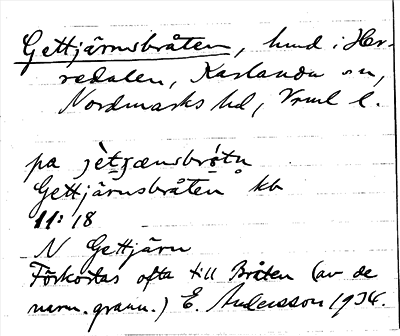 Gettjärnsbråten, hmd i Her-
redalen, Karlanda sn,
Nordmarks hd, Vrml l.
på jètjænsbrótn
Gettjärnsbråten kb
11:18
N Gettjärn
Förkortas ofta till Bråten (av de
närm. grann.) E. Andersson 1934.